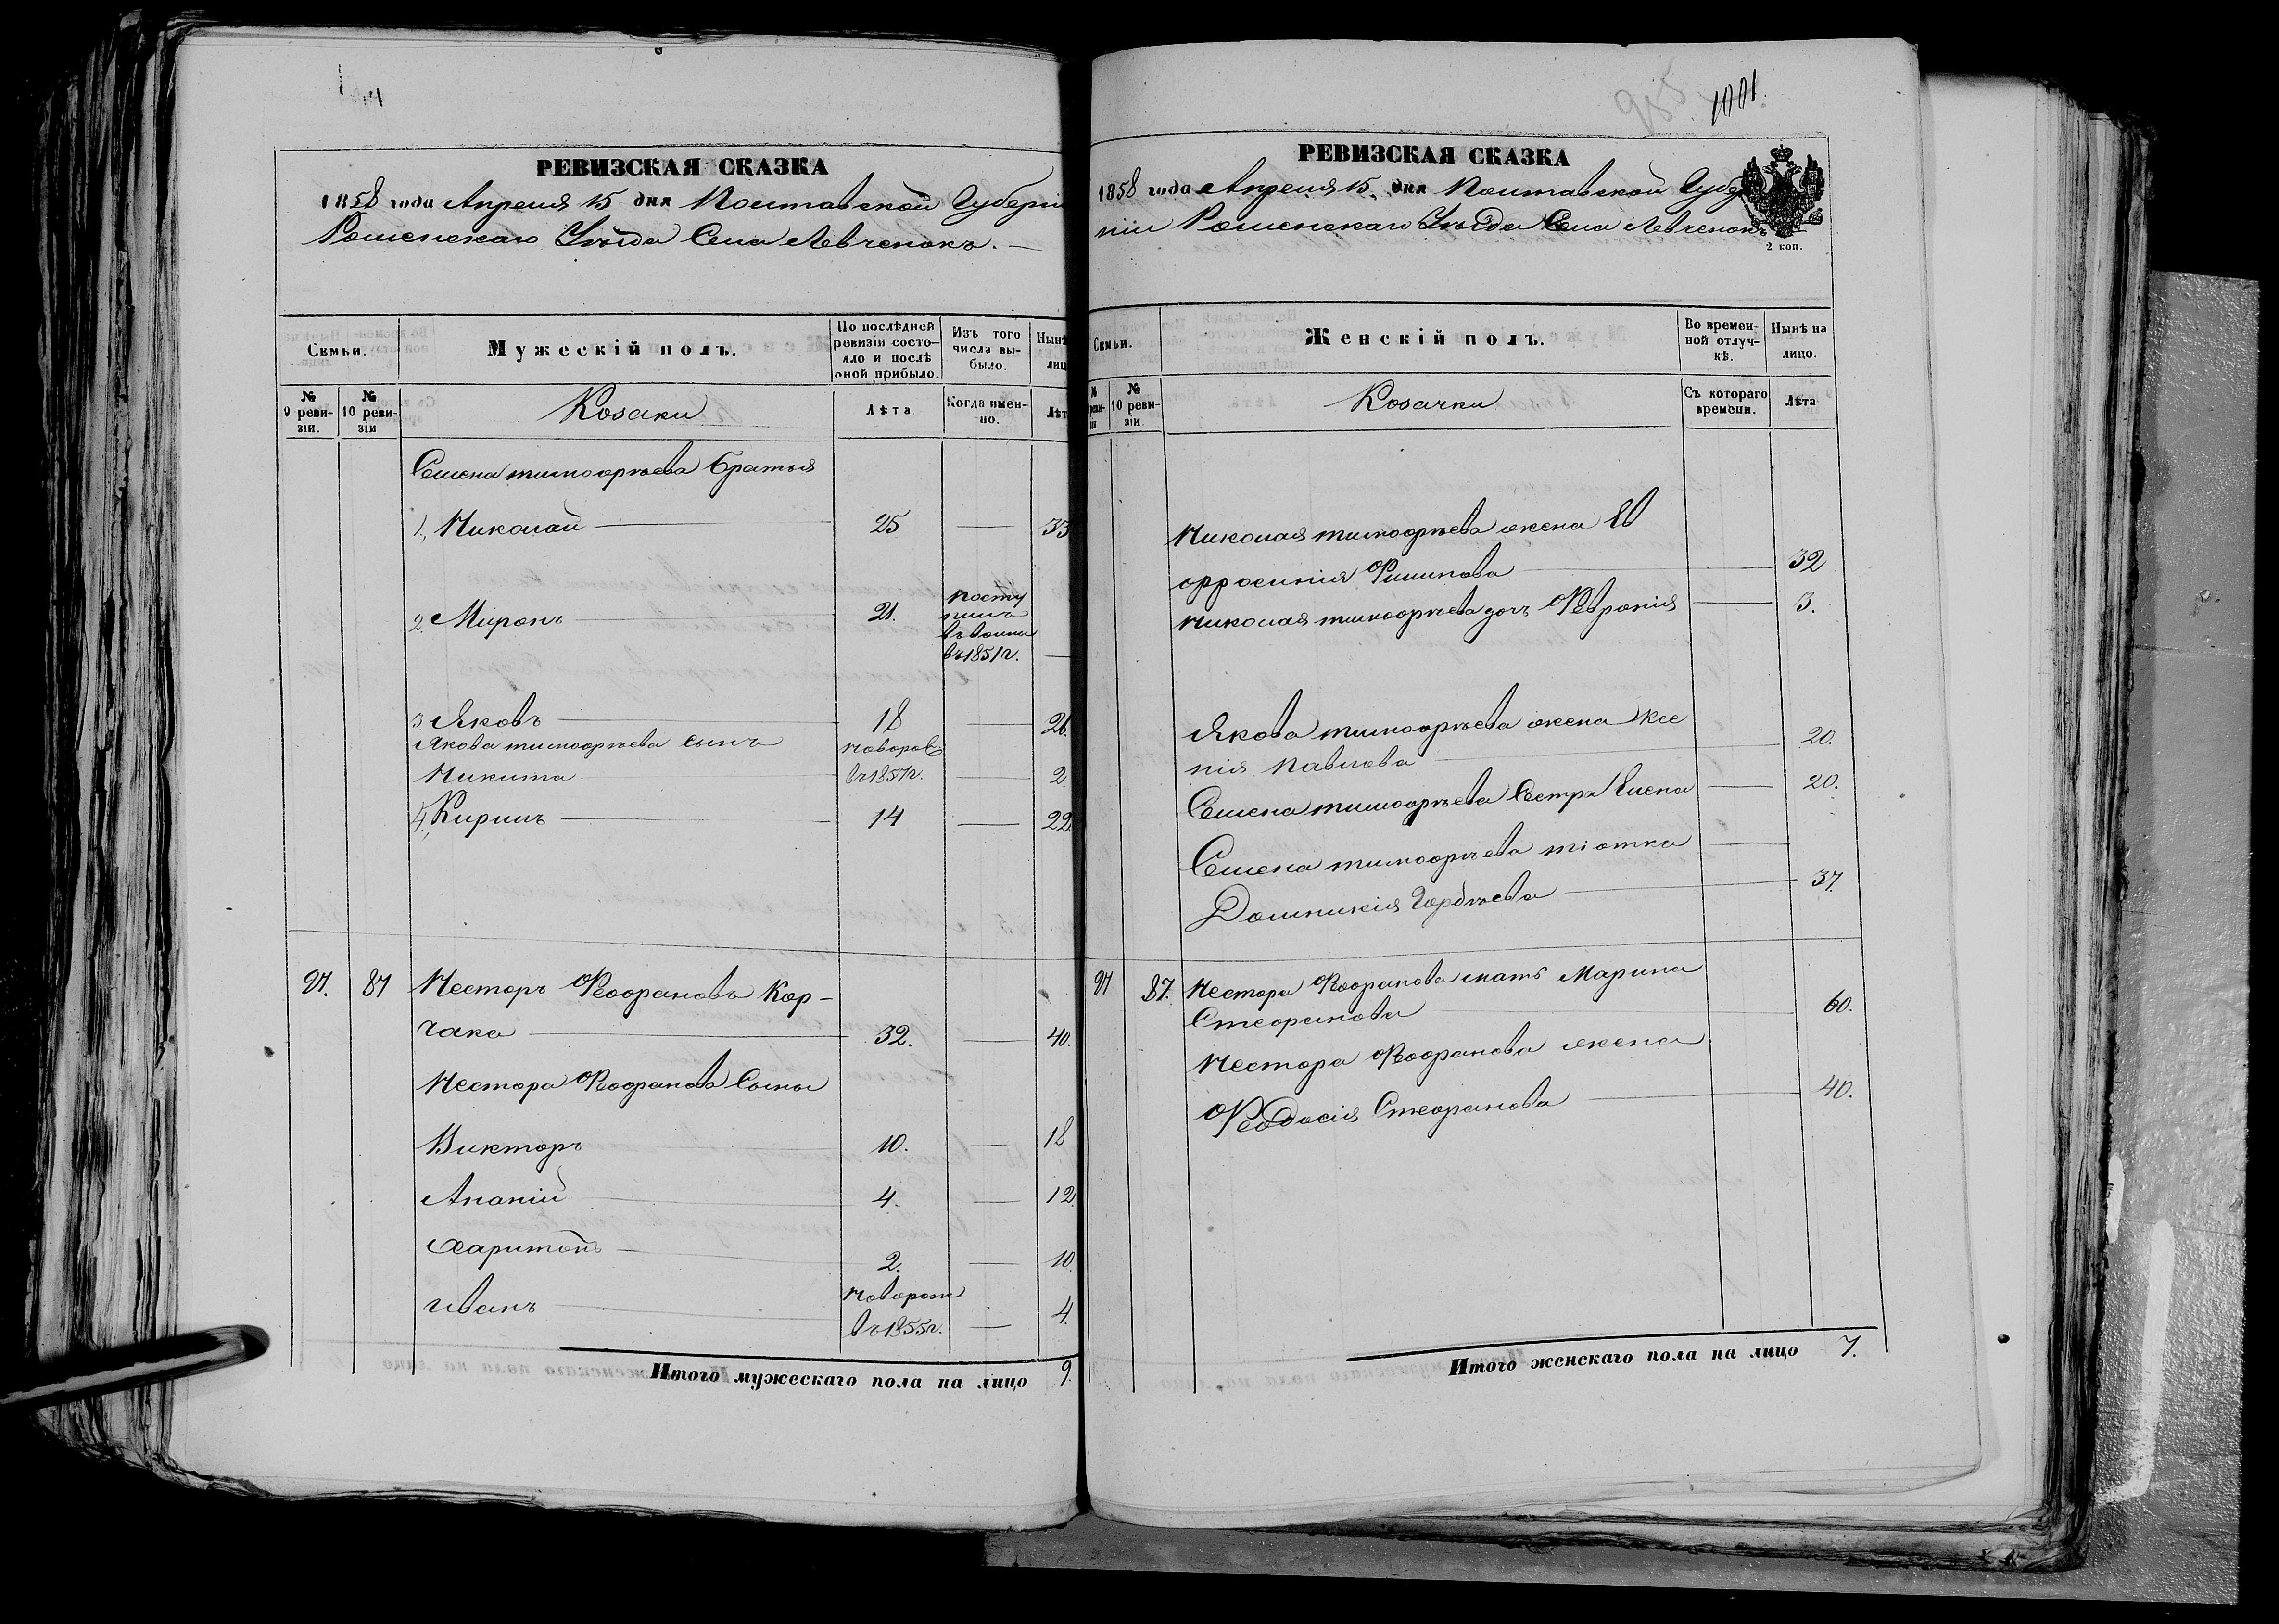 РЕВИЗСКАЯ СКАЗКА
1858 года Апреля 15 дня Полтавской Губерніи
Роменскаго Уѣзда Села Левченокъ.
Семьи.
Мужескій полъ.
По послѣдней ревизіи состояло и послѣ оной прибыло.
Изъ того числа выбыло.
Нынѣ лиц
№ 9 ревизіи.
№ 10 ревизіи
Козаки
Лѣта
Когда именно.
Лѣт
Семена тимофѣева братья
1, Николай 25 — 33
2. Миронъ 21.
посту
пилъ
въ
въ 1851 г. —
3 Яковъ 18 — 26.
Якова тимофѣева сынъ новорож
Никита въ 1857 г. — 2
4, Кирилъ 14 — 22.
97. 87 Несторъ Феофановъ Кор-
чака 32. — 40.
Нестора Феофанова Сыны
Викторъ 10. — 18
Ананій 4. — 12.
Харитонъ 2. — 10.
Иванъ новорож
въ 1855 г. — 4.
Итого мужескаго пола на лицо 9.
955
1001.
РЕВИЗСКАЯ СКАЗКА
1858 года Апреля 15. дня Полтавской Губер
ніи Роменскаго Уѣзда Села Левченокъ
2 коп.
Семьи.
Женскій полъ.
Во временной отлучкѣ.
Нынѣ на лицо.
№ реви-
зіи
№ 10 ревизіи.
Козачки
Съ котораго времени.
Лѣта
Николая тимофѣева жена Ев
фросинія Филипова — 32
Николая тимофѣева дочь Февронія — 3.
Якова тимофѣева жена Ксе
нія Павлова 20.
Семена тимофѣева Сестра Елена — 20.
Семена тимофѣева тіотка —
Домникія Гордѣева 37.
97 87. Нестора Феофанова мать Марина
Стефанова 60.
Нестора Феофанова жена
Феодосія Стефанова 40.
Итого женскаго пола на лицо 7.